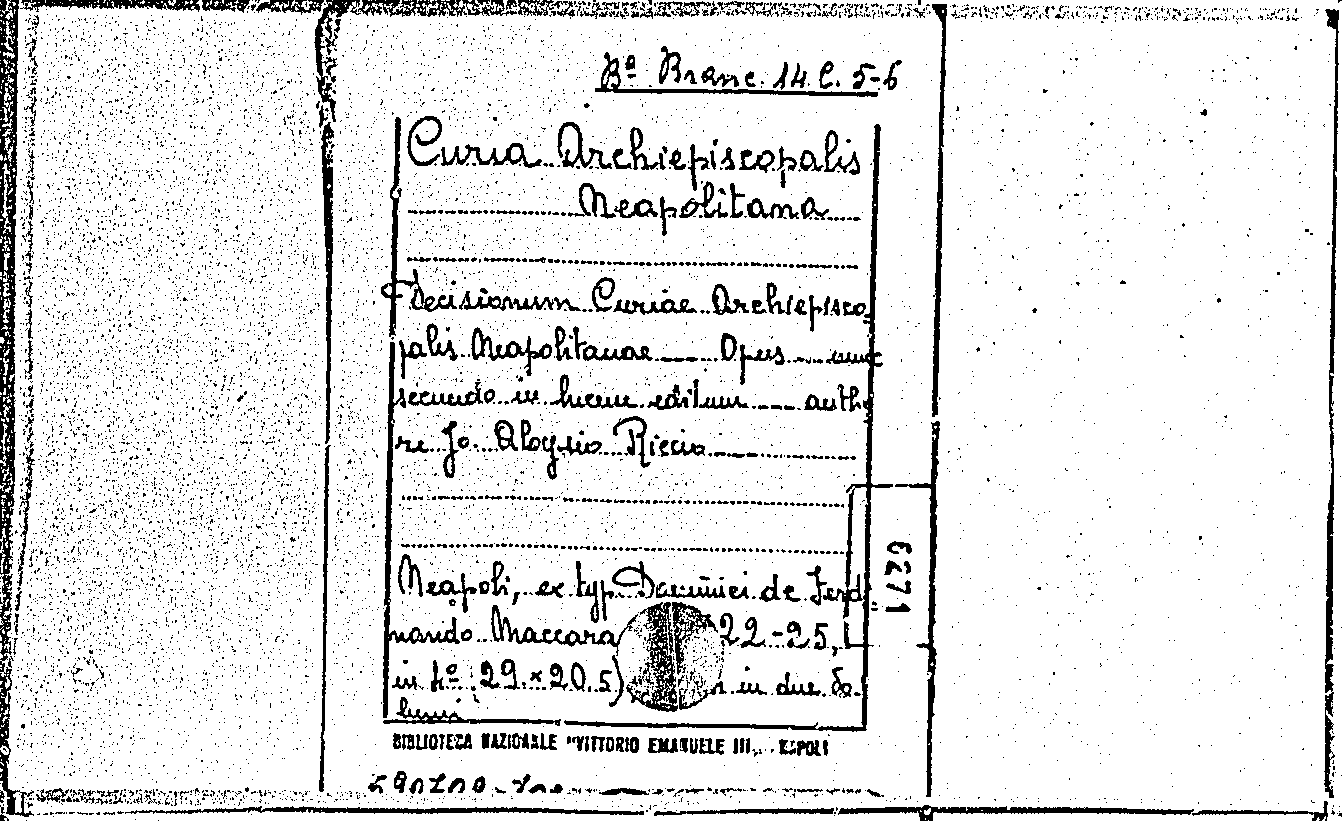 Bª Branc. 14. C. 5-6
Curia Archiepiscopalis
Neapolitana
Decisionum Curiae Archiepisco-
palis Neapolitanae Opus nunc
secundo in lucem editum autho
re Jo. Aloysio Riccio
Neapoli, ex typ. Dominici de Ferd.
nando Maccara 22-25,
in 4º (29 × 20.5) in due vo-
lumi
BIBLIOTECA NAZIONALE "VITTORIO EMANUELE III„ - NAPOLI
6271